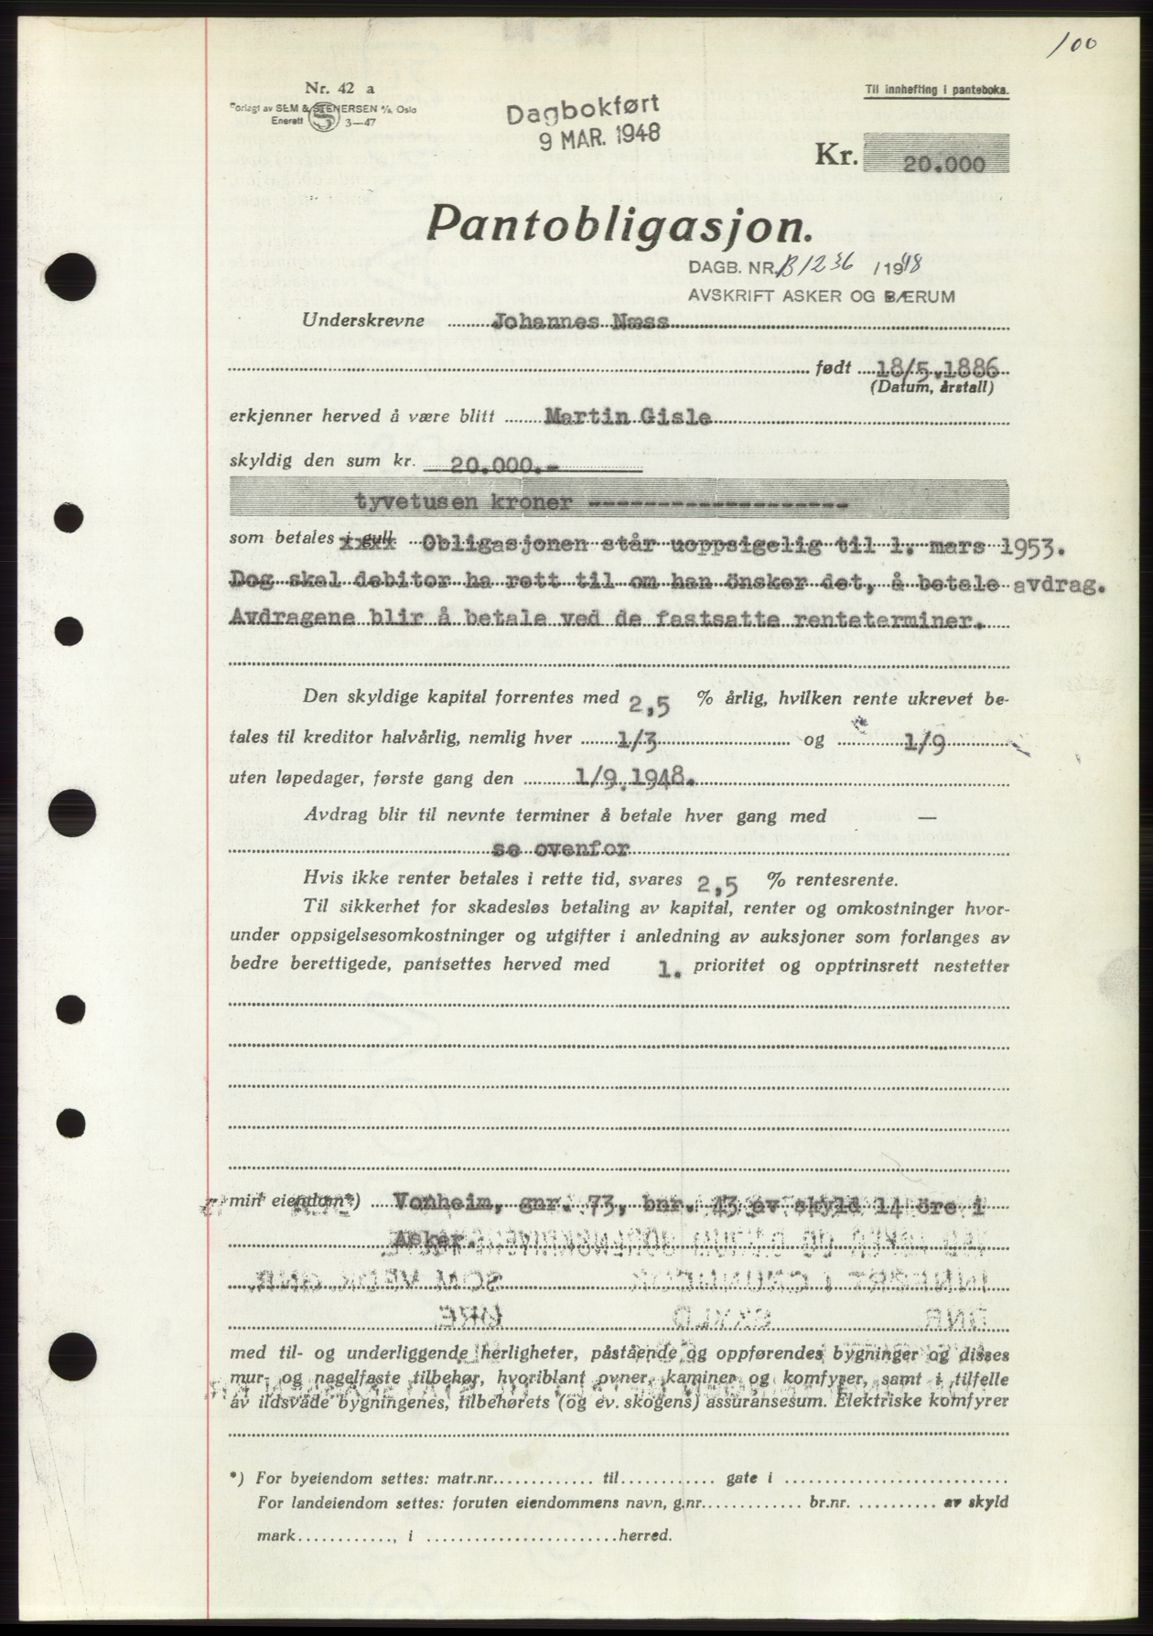 100
Nr. 42 a
Forlagt av SEM & STENERSEN A/S, Oslo
Enerett S 3—47
Til innhefting i panteboka.
Dagbokført
9 MAR. 1948
Kr. 20.000
Pantobligasjon.
DAGB. NR. B1236 /1948
AVSKRIFT ASKER OG BÆRUM
Underskrevne Johannes Næss
født 18/5.1886
(Datum, årstall)
erkjenner herved å være blitt Martin Gisle
skyldig den sum kr. 20.000.-
tyvetusen kroner -------------------
som betales i gull Obligasjonen står uoppsigelig til 1. mars 1953.
Dog skal debitor ha rett til om han önsker det, å betale avdrag.
Avdragene blir å betale ved de fastsatte renteterminer.
Den skyldige kapital forrentes med 2,5 % årlig, hvilken rente ukrevet be-
tales til kreditor halvårlig, nemlig hver 1/3 og 1/9
uten løpedager, første gang den 1/9.1948.
Avdrag blir til nevnte terminer å betale hver gang med —
se ovenfor
Hvis ikke renter betales i rette tid, svares 2,5 % rentesrente.
Til sikkerhet for skadesløs betaling av kapital, renter og omkostninger hvor-
under oppsigelsesomkostninger og utgifter i anledning av auksjoner som forlanges av
bedre berettigede, pantsettes herved med 1. prioritet og opptrinsrett nestetter
min eiendom*) Vonheim, gnr. 73, bnr. 43 av skyld 14 öre i
Asker.
med til- og underliggende herligheter, påstående og oppførendes bygninger og disses
mur- og nagelfaste tilbehør, hvoriblant ovner, kaminer og komfyrer, samt i tilfelle
av ildsvåde bygningenes, tilbehørets (og ev. skogens) assuransesum. Elektriske komfyrer
*) For byeiendom settes: matr.nr. til gate i
For landeiendom settes: foruten eiendommens navn, g.nr. br.nr. av skyld
mark, i herred.